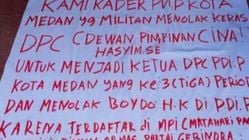 KAMI KADER PDIP KOTA
MEDAN YG MILITAN MENOLAK KERAS
DPC (DEWAN PIMPINAN CINA)
HASYIM.SE
UNTUK MENJADI KETUA DPC PDI.P
KOTA MEDAN YANG KE 3 (TIGA) PERIOD
DAN MENOLAK BOYDO H.K DI PDI.
KARENA TERDAFTAR DI MPI (MATAHARI
PARTAI GERINDRA